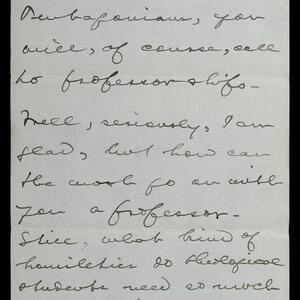 Pentagonians, you
will, of course, call
to professorships.
Well, seriously, I am
glad, but how can
the work go on with
you a professor.
Still, what kind of
homiletics do theological
students need so much